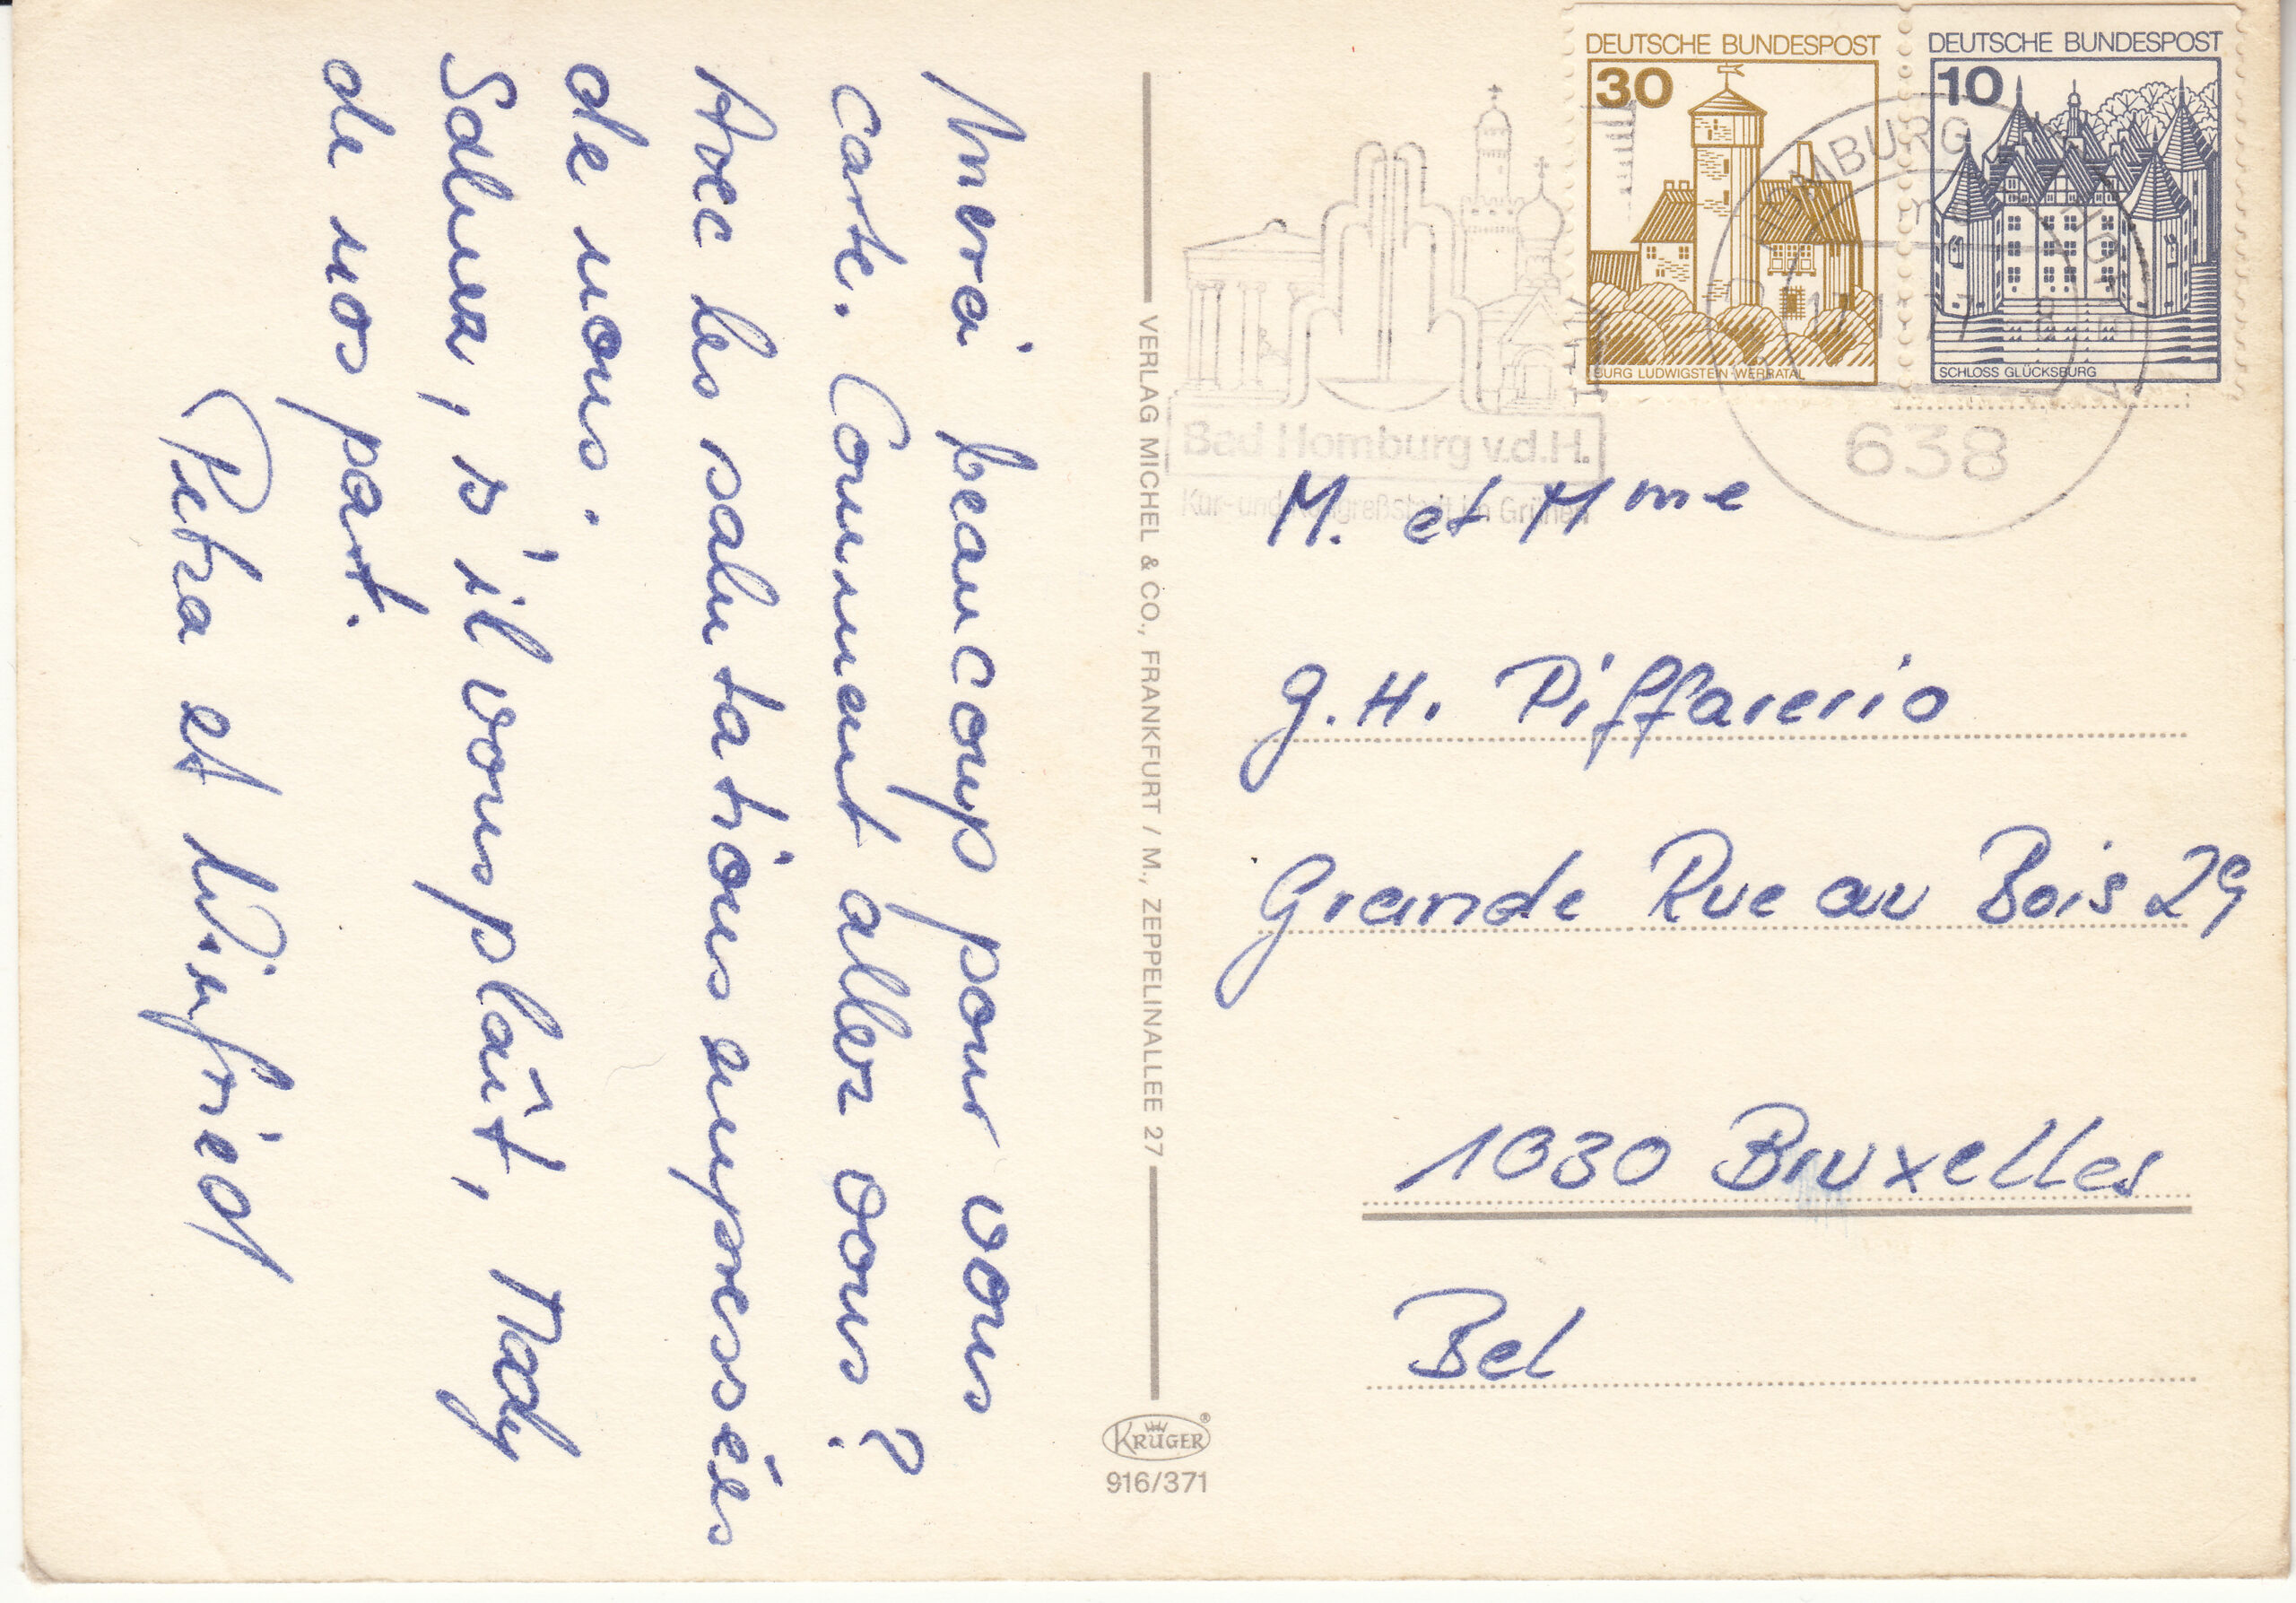 Merci beaucoup pour vous
carte. Comment allez vous?
Avec les salutations empressées
de nous.
Saluez, s'il vous plaît, Mady
de nos part.
Petra et Winfried
VERLAG MICHEL & CO., FRANKFURT / M., ZEPPELINALLEE 27
KRÜGER®
916/371
DEUTSCHE BUNDESPOST
30
BURG LUDWIGSTEIN·WERRATAL
DEUTSCHE BUNDESPOST
10
SCHLOSS GLÜCKSBURG
Bad Homburg v.d.H.
Kur- und Kongreßstadt im Grünen
638
M. et Mme
G. H. Piffarerio
Grande Rue au Bois 29
1030 Bruxelles
Bel